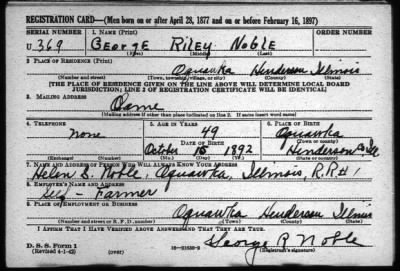 REGISTRATION CARD—(Men born on or after April 28, 1877 and on or before February 16, 1897)
SERIAL NUMBER 1. NAME (Print) ORDER NUMBER
U. 369 GEORGE RILEY NOBLE
(First) (Middle) (Last)
2. PLACE OF RESIDENCE (Print)
Oquawka Henderson Illinois
(Number and street) (Town, township, village, or city) (County) (State)
[THE PLACE OF RESIDENCE GIVEN ON THE LINE ABOVE WILL DETERMINE LOCAL BOARD
JURISDICTION; LINE 2 OF REGISTRATION CERTIFICATE WILL BE IDENTICAL]
3. MAILING ADDRESS
Same
(Mailing address if other than place indicated on line 2. If same insert word same)
4. TELEPHONE 5. AGE IN YEARS 6. PLACE OF BIRTH
none 49 Oquawka
DATE OF BIRTH (Town or county)
October 15 1892 Henderson Co. Ill
(Exchange) (Number) (Mo.) (Day) (Yr.) (State or country)
7. NAME AND ADDRESS OF PERSON WHO WILL ALWAYS KNOW YOUR ADDRESS
Helen S. Noble, Oquawka, Illinois, R.R #1
8. EMPLOYER'S NAME AND ADDRESS
Self - Farmer
9. PLACE OF EMPLOYMENT OR BUSINESS
Oquawka Henderson Illinois
(Number and street or R. F. D. number) (Town) (County) (State)
I AFFIRM THAT I HAVE VERIFIED ABOVE ANSWERS AND THAT THEY ARE TRUE.
George R Noble
D. S. S. Form 1
(Revised 4-1-42) (over) 16—21630-2 (Registrant's signature)